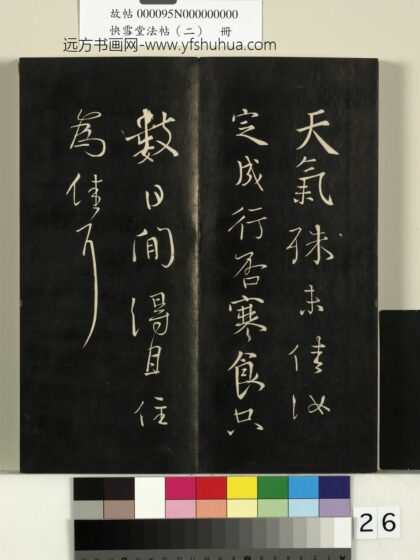 故帖 000095N000000000
快雪堂法帖（二） 冊
远方书画网-www.yfshuhua.com
天氣殊未佳汝
定成行否寒食只
數日間得且住
為佳耳
26